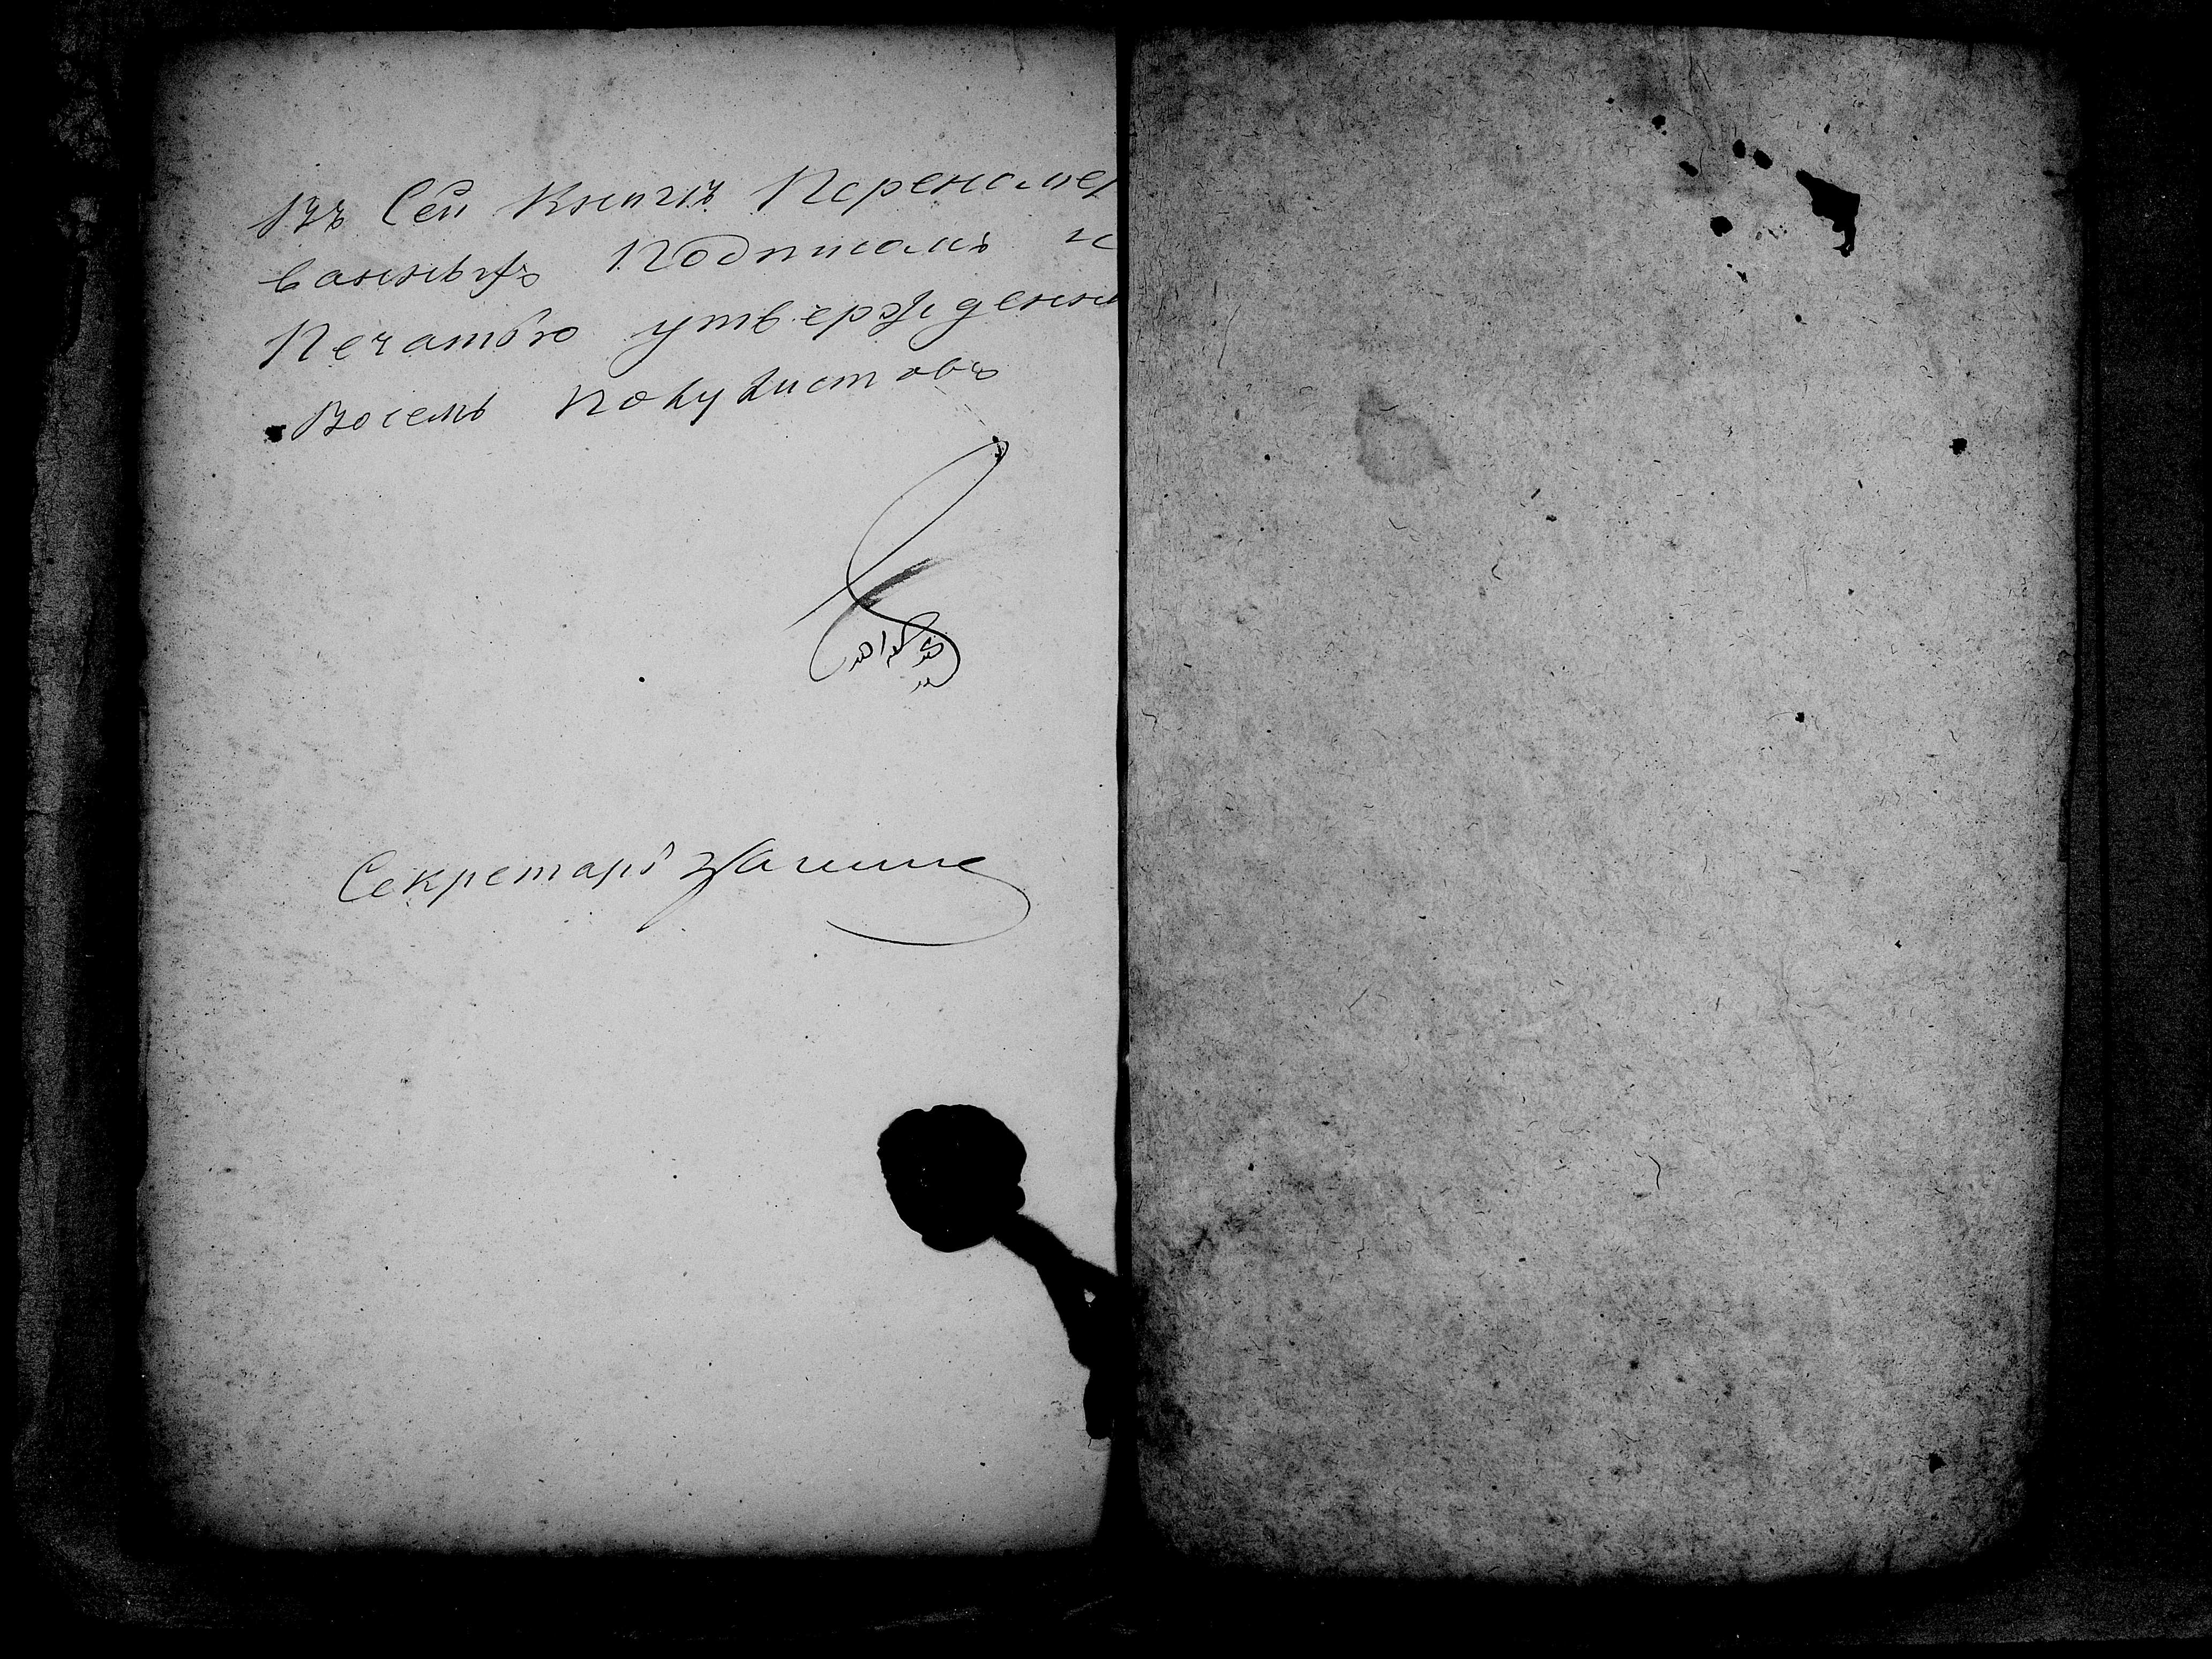 Въ Сей Книгѣ Переномер
ванныхъ Подписомъ и
Печатью утвержденны
Восемь полулистовъ
Секретарь